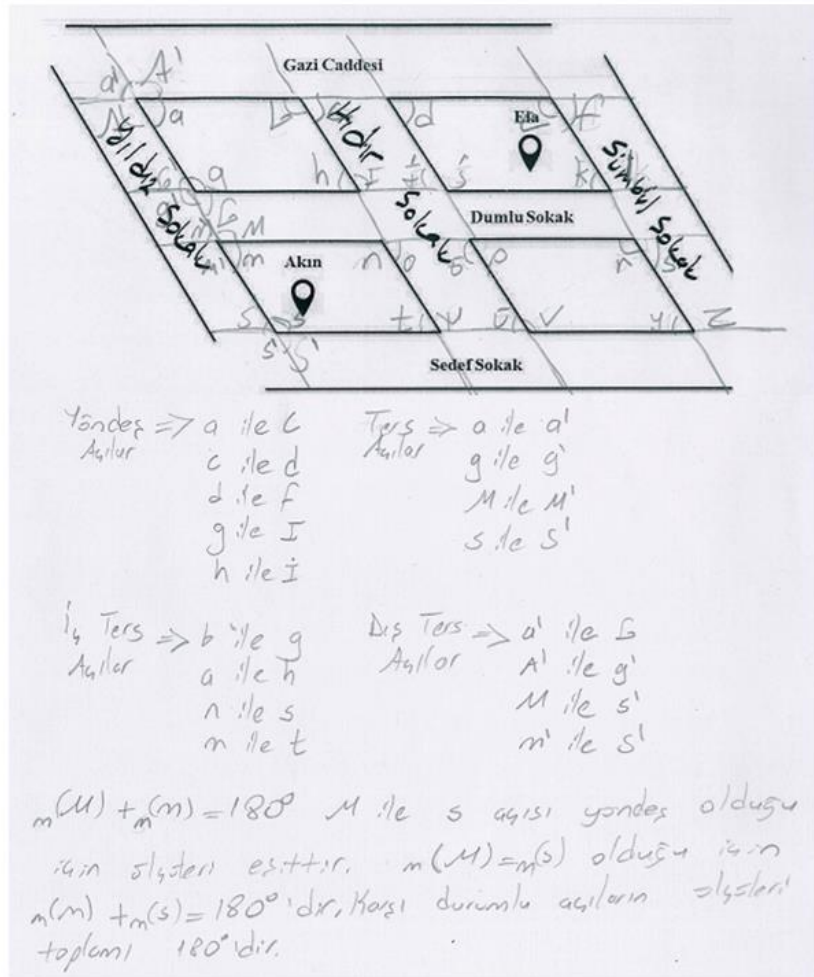 Gazi Caddesi
a' A'
a d f
Efa
Yıldız Sokak
Hıdır Sokak
Sümbül Sokak
g h I İ k
Dumlu Sokak
M
m n o p r s
Akın
s s t u ü v y z
s' S'
Sedef Sokak
Yöndeş Açılar => a ile c
c ile d
d ile f
g ile I
h ile İ
Ters Açılar => a ile a'
g ile g'
M ile M'
s ile s'
İç Ters Açılar => b ile g
a ile h
n ile s
m ile t
Dış Ters Açılar => a' ile G
A' ile g'
M ile s'
m' ile S'
m(M) + m(m) = 180° M ile s açısı yöndeş olduğu
için ölçüleri eşittir. m(M) = m(s) olduğu için
m(m) + m(s) = 180° 'dir. Karşı durumlu açıların ölçüleri
toplamı 180° 'dir.